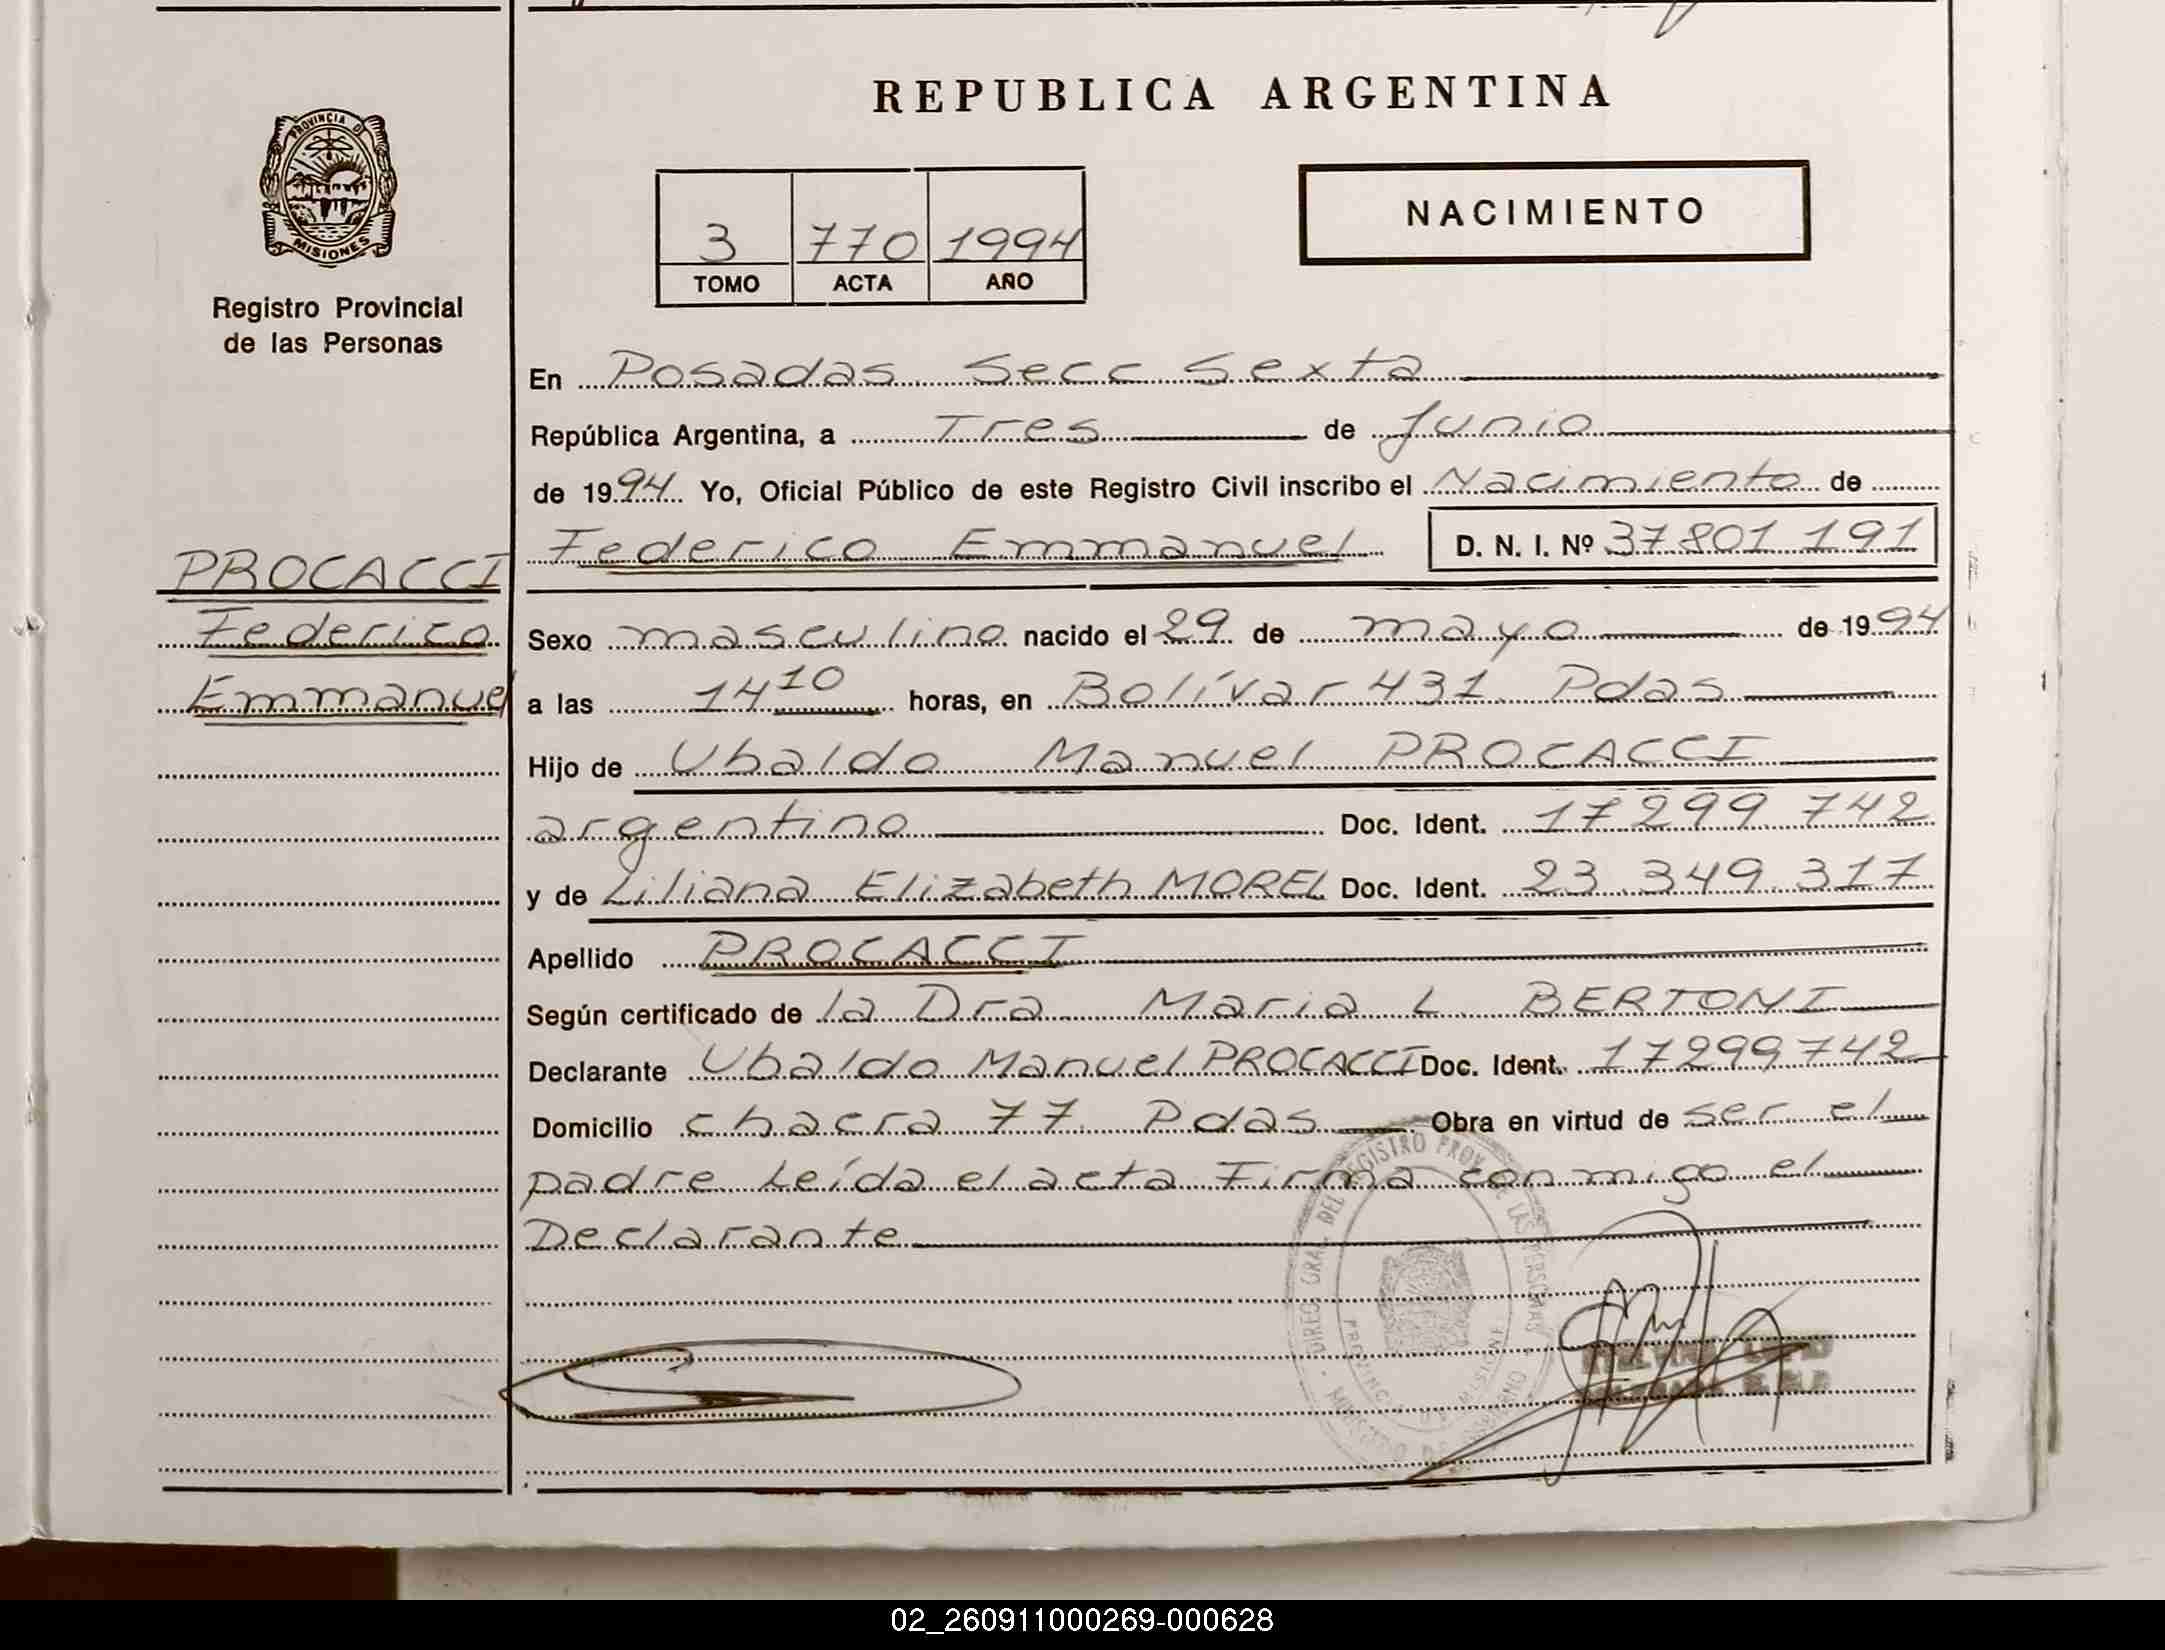 REPUBLICA ARGENTINA
PROVINCIA DE
MISIONES
Registro Provincial
de las Personas
3 770 1994
TOMO ACTA AÑO
NACIMIENTO
En Posadas Secc Sexta
República Argentina, a Tres de Junio
de 1994 Yo, Oficial Público de este Registro Civil inscribo el Nacimiento de
Federico Emmanuel D. N. I. Nº 37801 191
PROCACCI
Federico
Emmanuel
Sexo masculino nacido el 29 de mayo de 1994
a las 14 10 horas, en Bolívar 431 Pdas
Hijo de Ubaldo Manuel PROCACCI
argentino Doc. Ident. 17299 742
y de Liliana Elizabeth MOREL Doc. Ident. 23.349.317
Apellido PROCACCI
Según certificado de la Dra Maria L BERTONI
Declarante Ubaldo Manuel PROCACCI Doc. Ident. 17299742
Domicilio chacra 77 Pdas Obra en virtud de ser el
padre Leída el acta Firma conmigo el
Declarante
DIREC. GRAL. DEL REGISTRO PROV. DE LAS PERSONAS
PROVINCIA DE MISIONES
MINISTERIO DE GOBIERNO
02_260911000269-000628